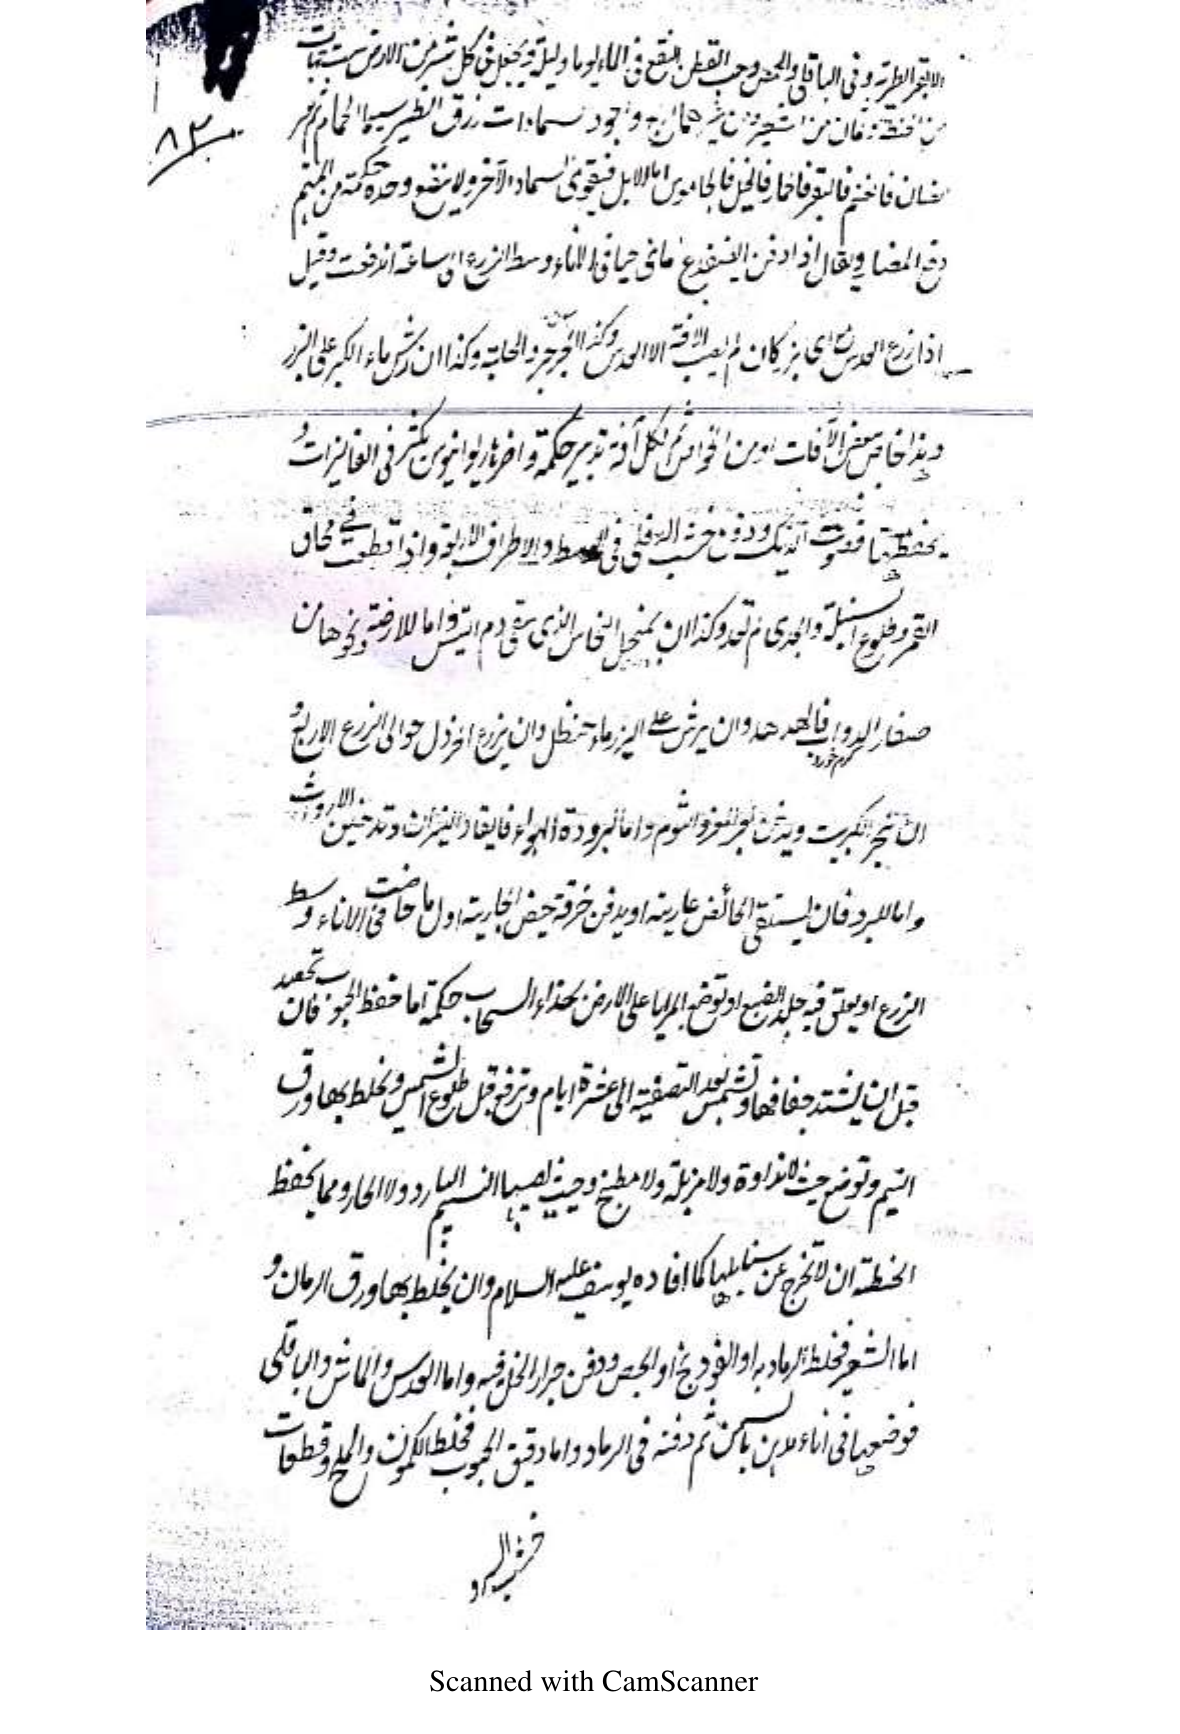 الابقر الطرية وفى الباقلى والحمص وحب القطن ينقع فى الماء يوما وليلة ويجعل فى كل شبر من الارض ست حبات
٨٢
من الحنطة وثمان من الشعير ومن غيرهما اربع واجود سمادات زرق الطير سيما الحمام ثم بعر
الضان فالغنم فالبقر فالحمار فالخيل فالجاموس اما الابل فيقوى السماد الآخر ولا ينفع وحده حكمة من المهم
دفع المضار ويقال اذا دفن الضفدع مائى حيا فى الاناء وسط الزرع اى ساعة اندفعت وقيل
اذا زرع العدس مع اى بزر كان لم يصب الآفة الا العدس وكذا الجرجر والحلبة وكذا ان رش ماء الكبر على البزر
وهذا خاص ببعض الآفات او من الخواص ثم لكل آفة تدبير حكمة واضرها ريوانيون يكثر فى الفاليزات و
يحفظها صوت الديك ودفن خشب الدفلى فى الوسط والاطراف الاربعة واذا قطعت فى محاق
القمر وطلوع السنبلة والجدى لم تعد وكذا ان بمنجل النحاس الذى سقى دم التيس واما للارضة ونحوها من
صغار الدواب فالهدهد وان يرش على البزر ماء حنظل وان يزرع الخردل حوالى الزرع الاربع و
كرم خورد
ان يبخر الكبريت ويدخن بعر المعز والثوم واما لبرودة الهواء فايقاد النيران وتدخين الاروث
واما للبرد فان يستقى الحائض عارية او يدفن خرقة حيض الجارية اول ما حاضت فى الاناء وسط
الزرع او يعلق فيه جلد الضبع او توضع المرايا على الارض بحذاء السحاب حكمة اما حفظ الحبوب فان تحصد
قبل ان يشتد جفافها وتشمس بعد التصفية الى عشرة ايام وترفع قبل طلوع الشمس ويخلط بها ورق
النيم وتوضع حيث لا نداوة ولا مزبلة ولا مطبخ وحيث يصيبها النسيم البارد ولا الحار ومما يحفظ
الحنطة ان لا تخرج عن سنابلها كما افاده يوسف عليه السلام وان يخلط بها ورق الرمان و
اما الشعير فخلط الرماد به او الفودنج او الجص ودفن جرار الخل فيه واما العدس والماش والباقلى
فوضعها فى اناء مدهن بالسمن ثم دفنه فى الرماد واما دقيق الحبوب فخلط الكمون والملح وقطعات
خشب السرو
Scanned with CamScanner